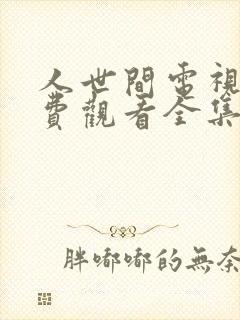 人世間電視
費觀看全集
胖嘟嘟的無奈